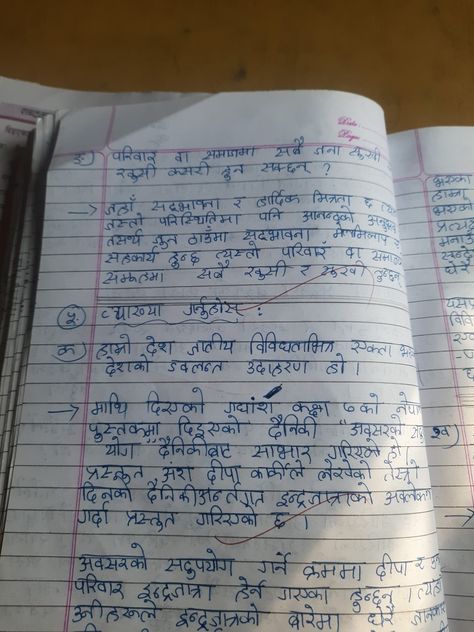 Date:
Page:
ङ) परिवार वा समाजमा सबै जना सुखी
खुसी कसरी हुन सक्छन् ?
→ जहाँ सद्भावना र हार्दिक मित्रता छ
जस्तो परिस्थितिमा पनि आनन्दको
तसर्थ जुन ठाउँमा सद्भावना मेलमिलाप र
सहकार्य हुन्छ त्यस्तो परिवार वा
समूहमा सबै खुसी र सुखी हुन्छन्
व्याख्या गर्नुहोस् :
क) हाम्रो देश जातीय विविधताभित्र एकता
देशको ज्वलन्त उदाहरण हो ।
→ माथि दिइएको गद्यांश कक्षा ७ को
पुस्तकमा दिइएको दैनिकी "अवसरको
योग" दैनिकीबाट साभार गरिएको हो
प्रस्तुत अंश दीपा कार्कीले लेखेको तेस्रो
दिनको दैनिकीअन्तर्गत इन्द्रजात्राको अवलोकन
गर्दा प्रस्तुत गरिएको छ ।
अवसरको सदुपयोग गर्ने क्रममा दीपा र
परिवार इन्द्रजात्रा हेर्न गएका हुन्छन् ।
उनीहरूले इन्द्रजात्राको बारेमा धेरै